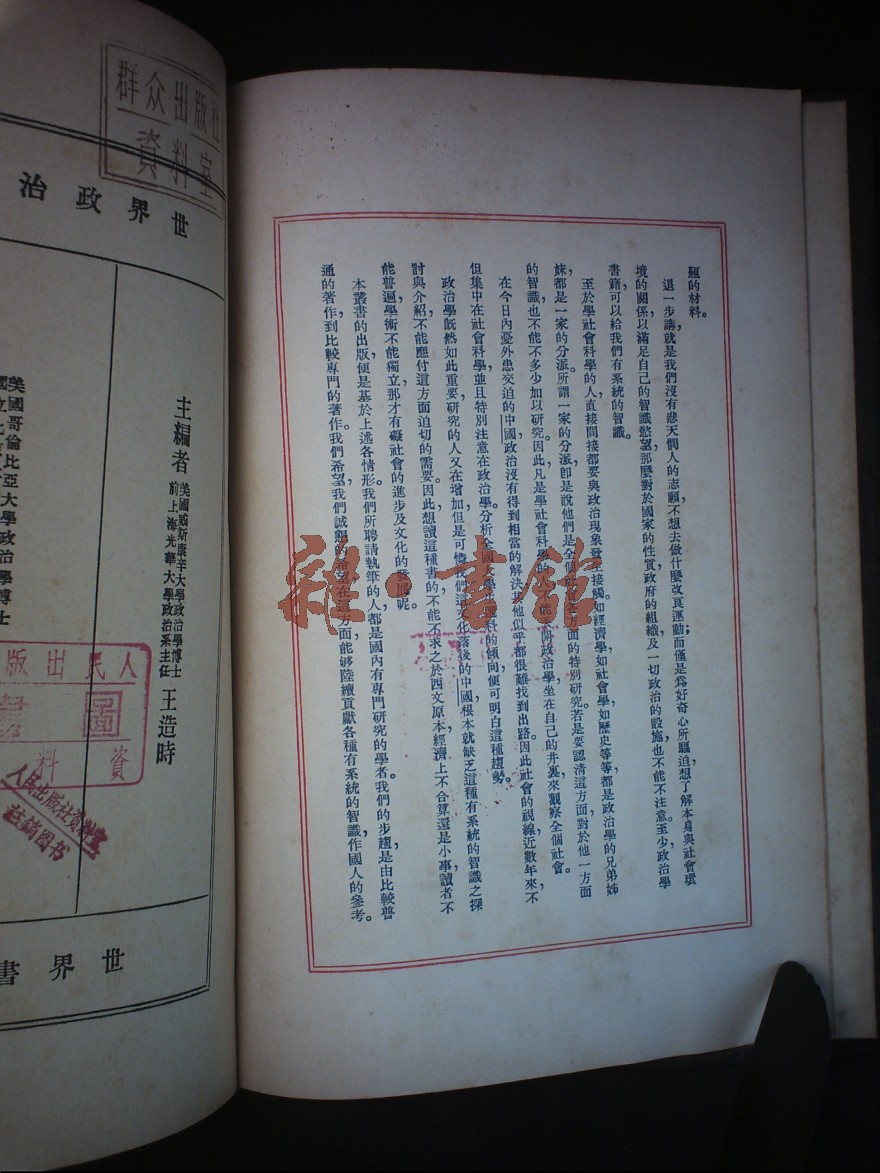 題的材料。
退一步講，就是我們沒有悲天憫人的志願，不想去做什麼改良運動，而僅是爲好奇心所驅迫，想了解本身與社會環
境的關係，以滿足自己的智識慾望，那麼對於國家的性質，政府的組織，及一切政治的設施，也不能不注意。至少政治學
書籍可以給我們有系統的智識。
至於學社會科學的人，直接間接都要與政治現象發生接觸。如經濟學，如社會學，如歷史等等，都是政治學的兄弟姊
妹，都是一家的分派。所謂一家的分派，卽是說他們是全個
方面的特別研究。若是要認清這方面，對於他一方面
的智識，也不能不多少加以研究。因此，凡是學社會科學的人
政治學，坐在自己的井裏，來觀察全個社會。
在今日內憂外患交迫的中國，政治沒有得到相當的解決，其他似乎都很難找到出路。因此社會的視線，近數年來，不
但集中在社會科學，並且特別注意在政治學。分析全國大學
科的傾向，便可明白這種趨勢。
政治學旣然如此重要，研究的人又在增加，但是可憐我們這文化落後的中國，根本就缺乏這種有系統的智識之探
討與介紹，不能應付這方面迫切的需要。因此，想讀這種書的，不能不求之於西文原本。經濟上不合算還是小事，讀者不
能普遍，學術不能獨立，那才有礙社會的進步及文化的發展呢。
本叢書的出版，便是基於上述各情形。我們所聘請執筆的人，都是國內有專門研究的學者。我們的步趨，是由比較普
通的著作，到比較專門的著作。我們希望，我們誠懇的希望，在這方面能够陸續貢獻各種有系統的智識，作國人的參考。
群众出版社
資料室
世界政治
主編者
美國威斯康辛大學政治學博士
前上海光華大學政治系主任
王造時
美國哥倫比亞大學政治學博士
世界書
人民出版
圖書
資料
人民出版社資料室
註銷图书
雜·書館